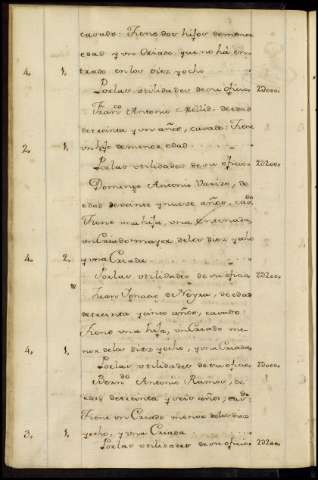 casado: Tiene dos hijos de menor
edad y un Criado, que no há en-
4. 1, trado en los diez y ocho
Por las utilidades de su oficio 2200.
Fran.co Antonio Mellid de edad
de treinta y un años, casado: Tiene
2. 1, un hijo de menor edad
Por las utilidades de su oficio 2200.
Domingo Antonio Varizo, de
edad de veinte y nueve años, cado
Tiene una hija, una Entenada,
un Criado mayor de los diez y ocho
4. 2. y una Criada
Por las utilidades de su oficio 2200.
Juan Ignacio de Neyra, de edad
de treinta y cinco años, casado
Tiene una hija, un Criado me-
4. 1, nor de los diez y ocho, y una Criada
Por las utilidades de su oficio 2200.
Bern.do Antonio Ramos, de
edad de treinta y seis años, cado
Tiene un Criado menor de los diez
3. 1, y ocho, y una Criada
Por las utilidades de su oficio 2200.